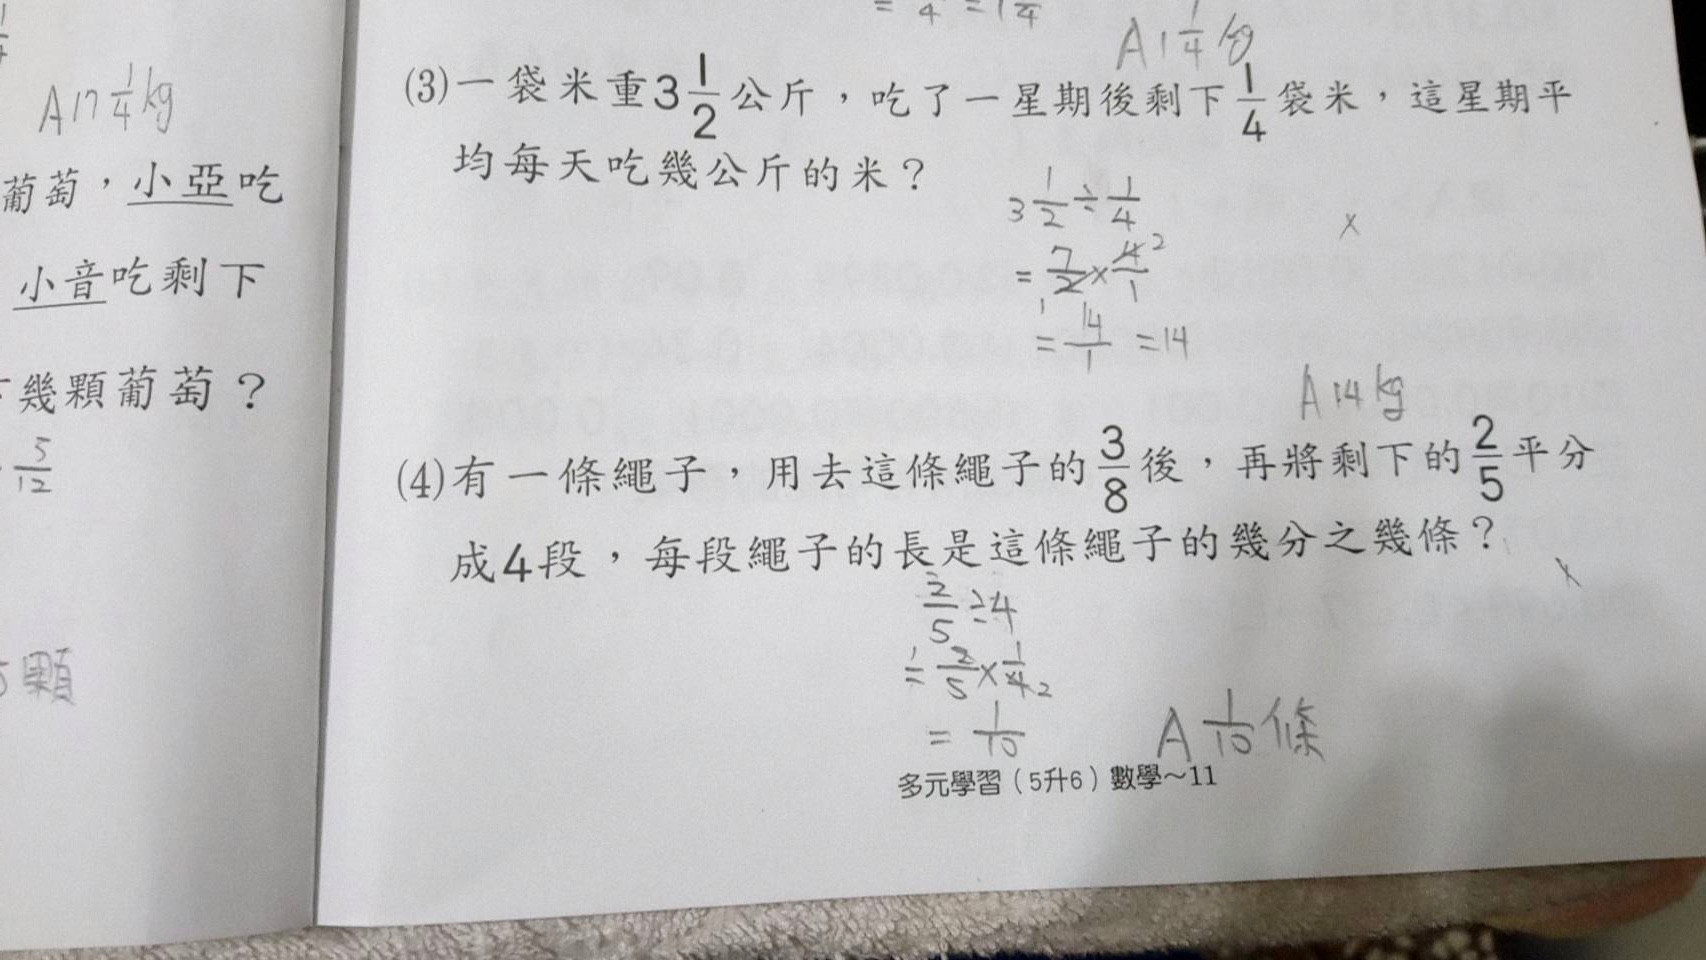 A 17 1/4 kg
葡萄，小亞吃
小音吃剩下
幾顆葡萄？
5/12
顆
A 1 1/4 kg
(3)一袋米重3 1/2公斤，吃了一星期後剩下1/4袋米，這星期平
均每天吃幾公斤的米？
3 1/2 ÷ 1/4
= 7/2 × 4/1
2
1
= 14/1 = 14
×
A 14 kg
(4)有一條繩子，用去這條繩子的3/8後，再將剩下的2/5平分
成4段，每段繩子的長是這條繩子的幾分之幾條？
×
2/5 ÷ 4
= 2/5 × 1/4
1
2
= 1/10
A 1/10 條
多元學習（5升6）數學～11